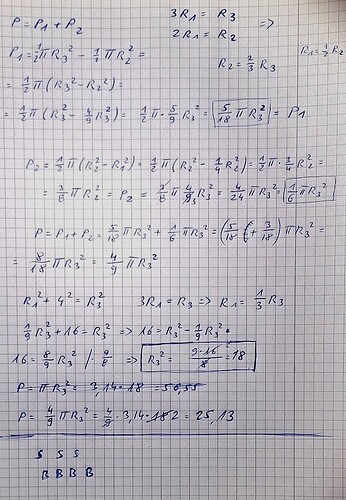 P = P₁ + P₂
3R₁ = R₃ =>
2R₁ = R₂
R₂ = 2/3 R₃
R₁ = 1/2 R₂
P₁ = 1/2 π R₃² - 1/2 π R₂² =
= 1/2 π (R₃² - R₂²) =
= 1/2 π (R₃² - 4/9 R₃²) = 1/2 π · 5/9 R₃² = 5/18 π R₃² = P₁
P₂ = 1/2 π (R₂² - R₁²) = 1/2 π (R₂² - 1/4 R₂²) = 1/2 π · 3/4 R₂² =
= 3/8 π R₂² = P₂ = 3/8 π 4/9 R₃² = 4/24 π R₃² = 1/6 π R₃²
P = P₁ + P₂ = 5/18 π R₃² + 1/6 π R₃² = (5/18 + 3/18) π R₃² =
= 8/18 π R₃² = 4/9 π R₃²
R₁² + 4² = R₃² 3R₁ = R₃ => R₁ = 1/3 R₃
1/9 R₃² + 16 = R₃² => 16 = R₃² - 1/9 R₃²
16 = 8/9 R₃² / · 9/8 => R₃² = 9·16/8 = 18
P = π R₃² = 3,14 · 18 = 56,55
P = 4/9 π R₃² = 4/9 · 3,14 · 18 2 = 25,13
S S S
B B B B